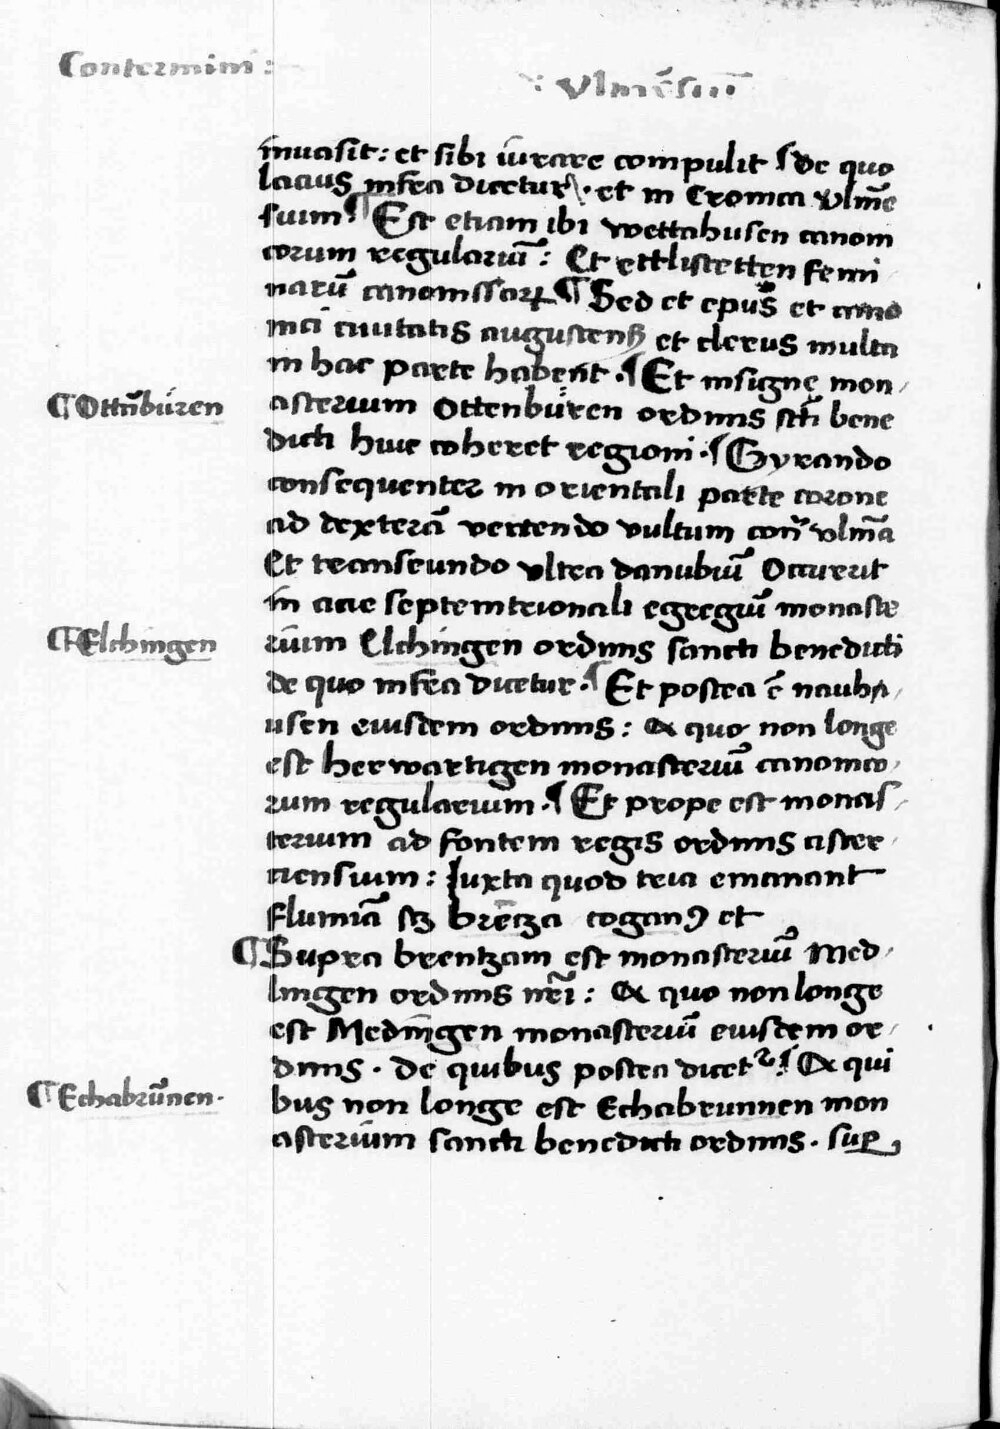 Contermini :
Vlmēsiū
invasit : et sibi iurare compulit ¶ De quo
lacius infra dicetur · et in Cronica vlmē
sium ¶ Est etiam ibi wettahusen canoni
corum regulariū : Et ettlistetten femi
narū canonissarꝝ ¶ Sed et epūs et cano
nici civitatis augustenß et clerus multa
in hac parte habent · ¶ Et insigne mon
¶ Ottn̄büren
asterium Ottenbüren ordinis scti bene
dicti huic coheret regioni · ¶ Gyrando
consequenter in orientali parte corone
ad dexterā vertendo vultum con̄ vlmā
Et transeundo vltra danubiū Occurrit
in acie septemtrionali egregiū monaste
¶ Elchingen
rium Elchingen ordinis sancti benedicti
de quo infra dicetur · ¶ Et postea ē nauh
usen eiusdem ordinis : A quo non longe
est herwartigen monasteriū canonico
rum regularium · ¶ Et prope est monas
terium ad fontem regis ordinis cister
ciensium : Iuxta quod tria emanant
flumiā sꝫ brēcza cogan9 et
¶ Supra brentzam est monasteriū Med
lingen ordinis nr̄i : A quo non longe
est Medingen monasteriū eiusdem or
dinis · De quibus postea dicetr ¶ A qui
¶ Echabrūnen ·
bus non longe est Echabrunnen mon
asterium sancti benedicti ordinis · sup